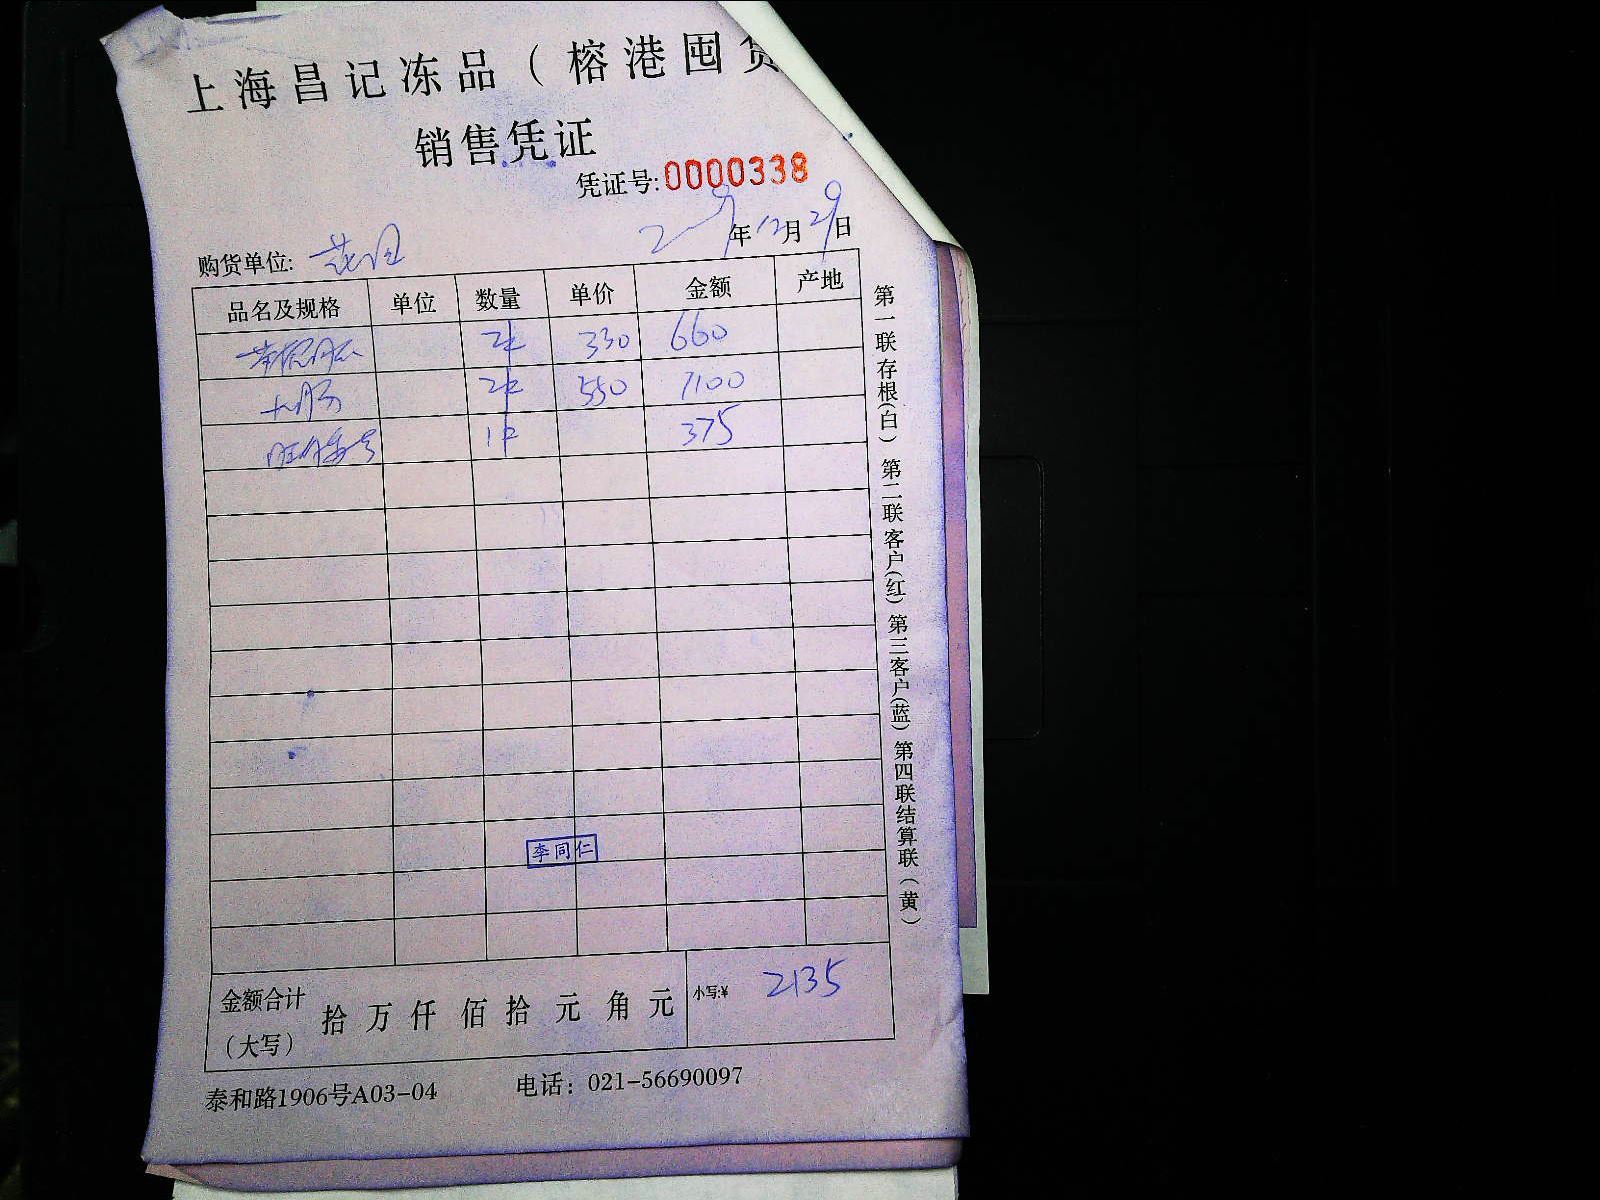 上海昌记冻品（榕港囤货
销售凭证
凭证号:0000338
年12月29日
购货单位:
品名及规格 单位 数量 单价 金额 产地
2件 330 660
大肠 2件 550 1100
1件 375
李同仁
金额合计（大写） 拾 万 仟 佰 拾 元 角 元 小写:¥ 2135
泰和路1906号A03-04 电话：021-56690097
第一联存根(白) 第二联客户(红) 第三客户(蓝) 第四联结算联（黄）